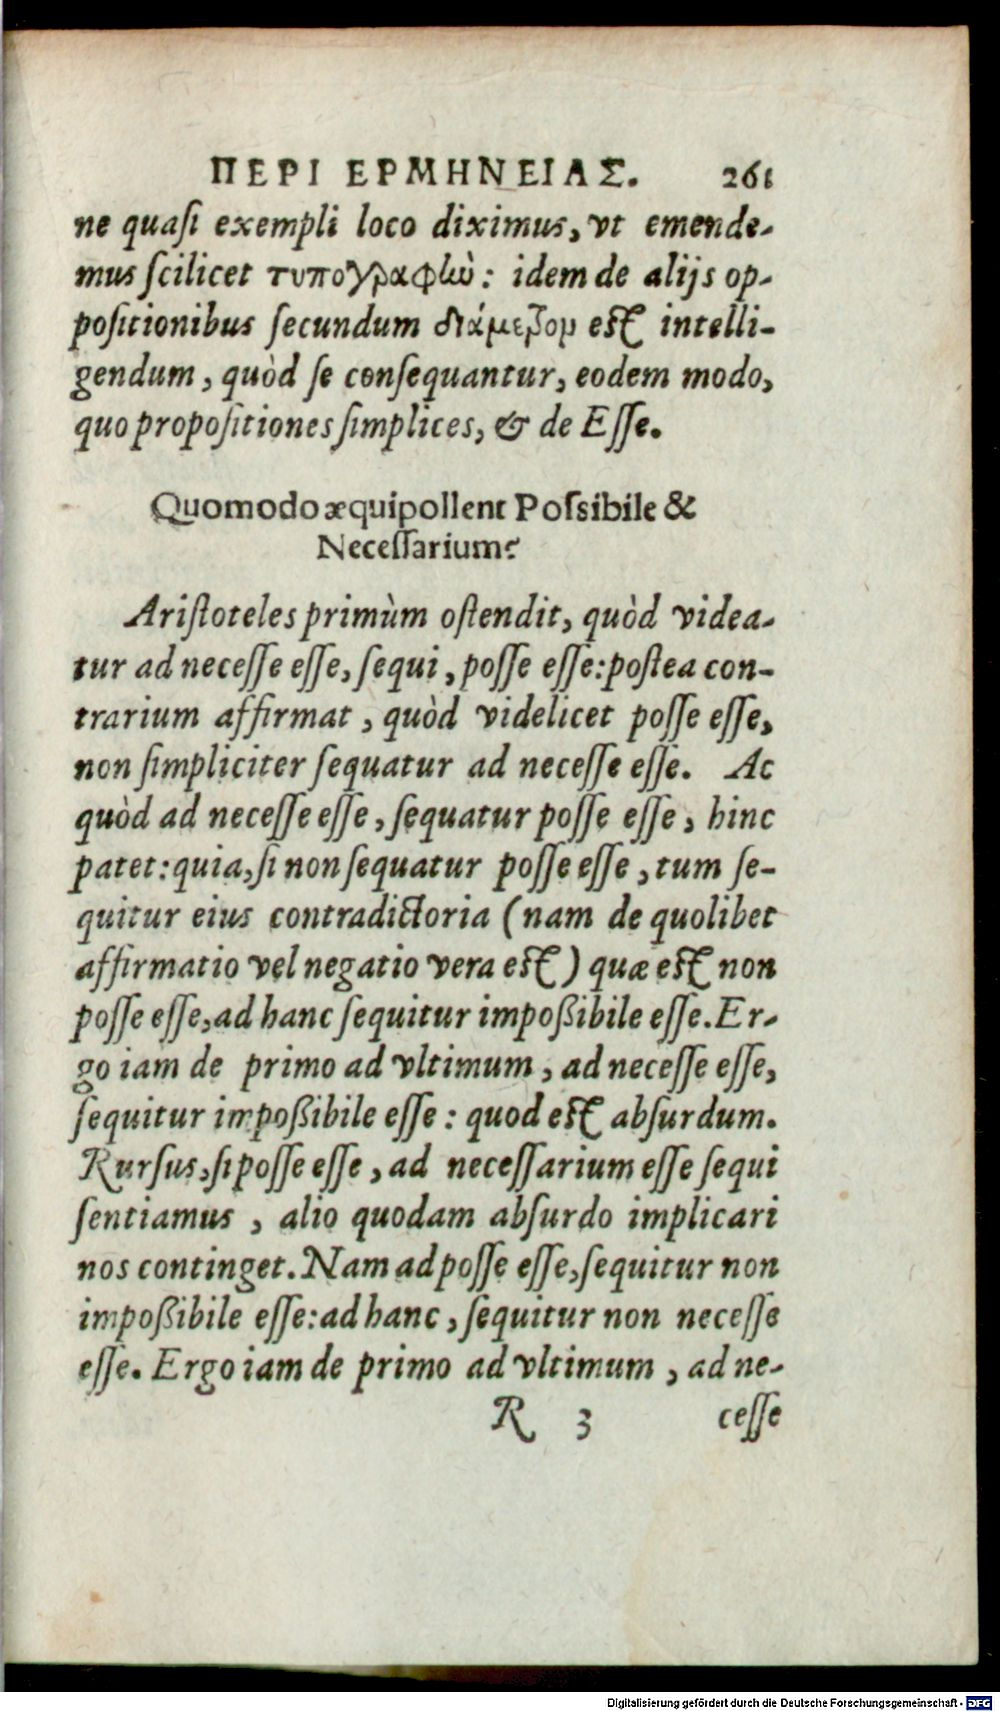 ΠΕΡΙ ΕΡΜΗΝΕΙΑΣ. 261
ne quasi exempli loco diximus, vt emende-
mus scilicet τυπογραφίαν: idem de alijs op-
positionibus secundum διάμετρον est intelli-
gendum, quòd se consequantur, eodem modo,
quo propositiones simplices, & de Esse.
Quomodo æquipollent Possibile &
Necessarium?
Aristoteles primùm ostendit, quòd videa-
tur ad necesse esse, sequi, posse esse: postea con-
trarium affirmat, quòd videlicet posse esse,
non simpliciter sequatur ad necesse esse. Ac
quòd ad necesse esse, sequatur posse esse, hinc
patet: quia, si non sequatur posse esse, tum se-
quitur eius contradictoria (nam de quolibet
affirmatio vel negatio vera est) quæ est non
posse esse, ad hanc sequitur impoßibile esse. Er-
go iam de primo ad vltimum, ad necesse esse,
sequitur impoßibile esse: quod est absurdum.
Rursus, si posse esse, ad necessarium esse sequi
sentiamus, alio quodam absurdo implicari
nos continget. Nam ad posse esse, sequitur non
impoßibile esse: ad hanc, sequitur non necesse
esse. Ergo iam de primo ad vltimum, ad ne-
R 3 cesse
Digitalisierung gefördert durch die Deutsche Forschungsgemeinschaft - DFG